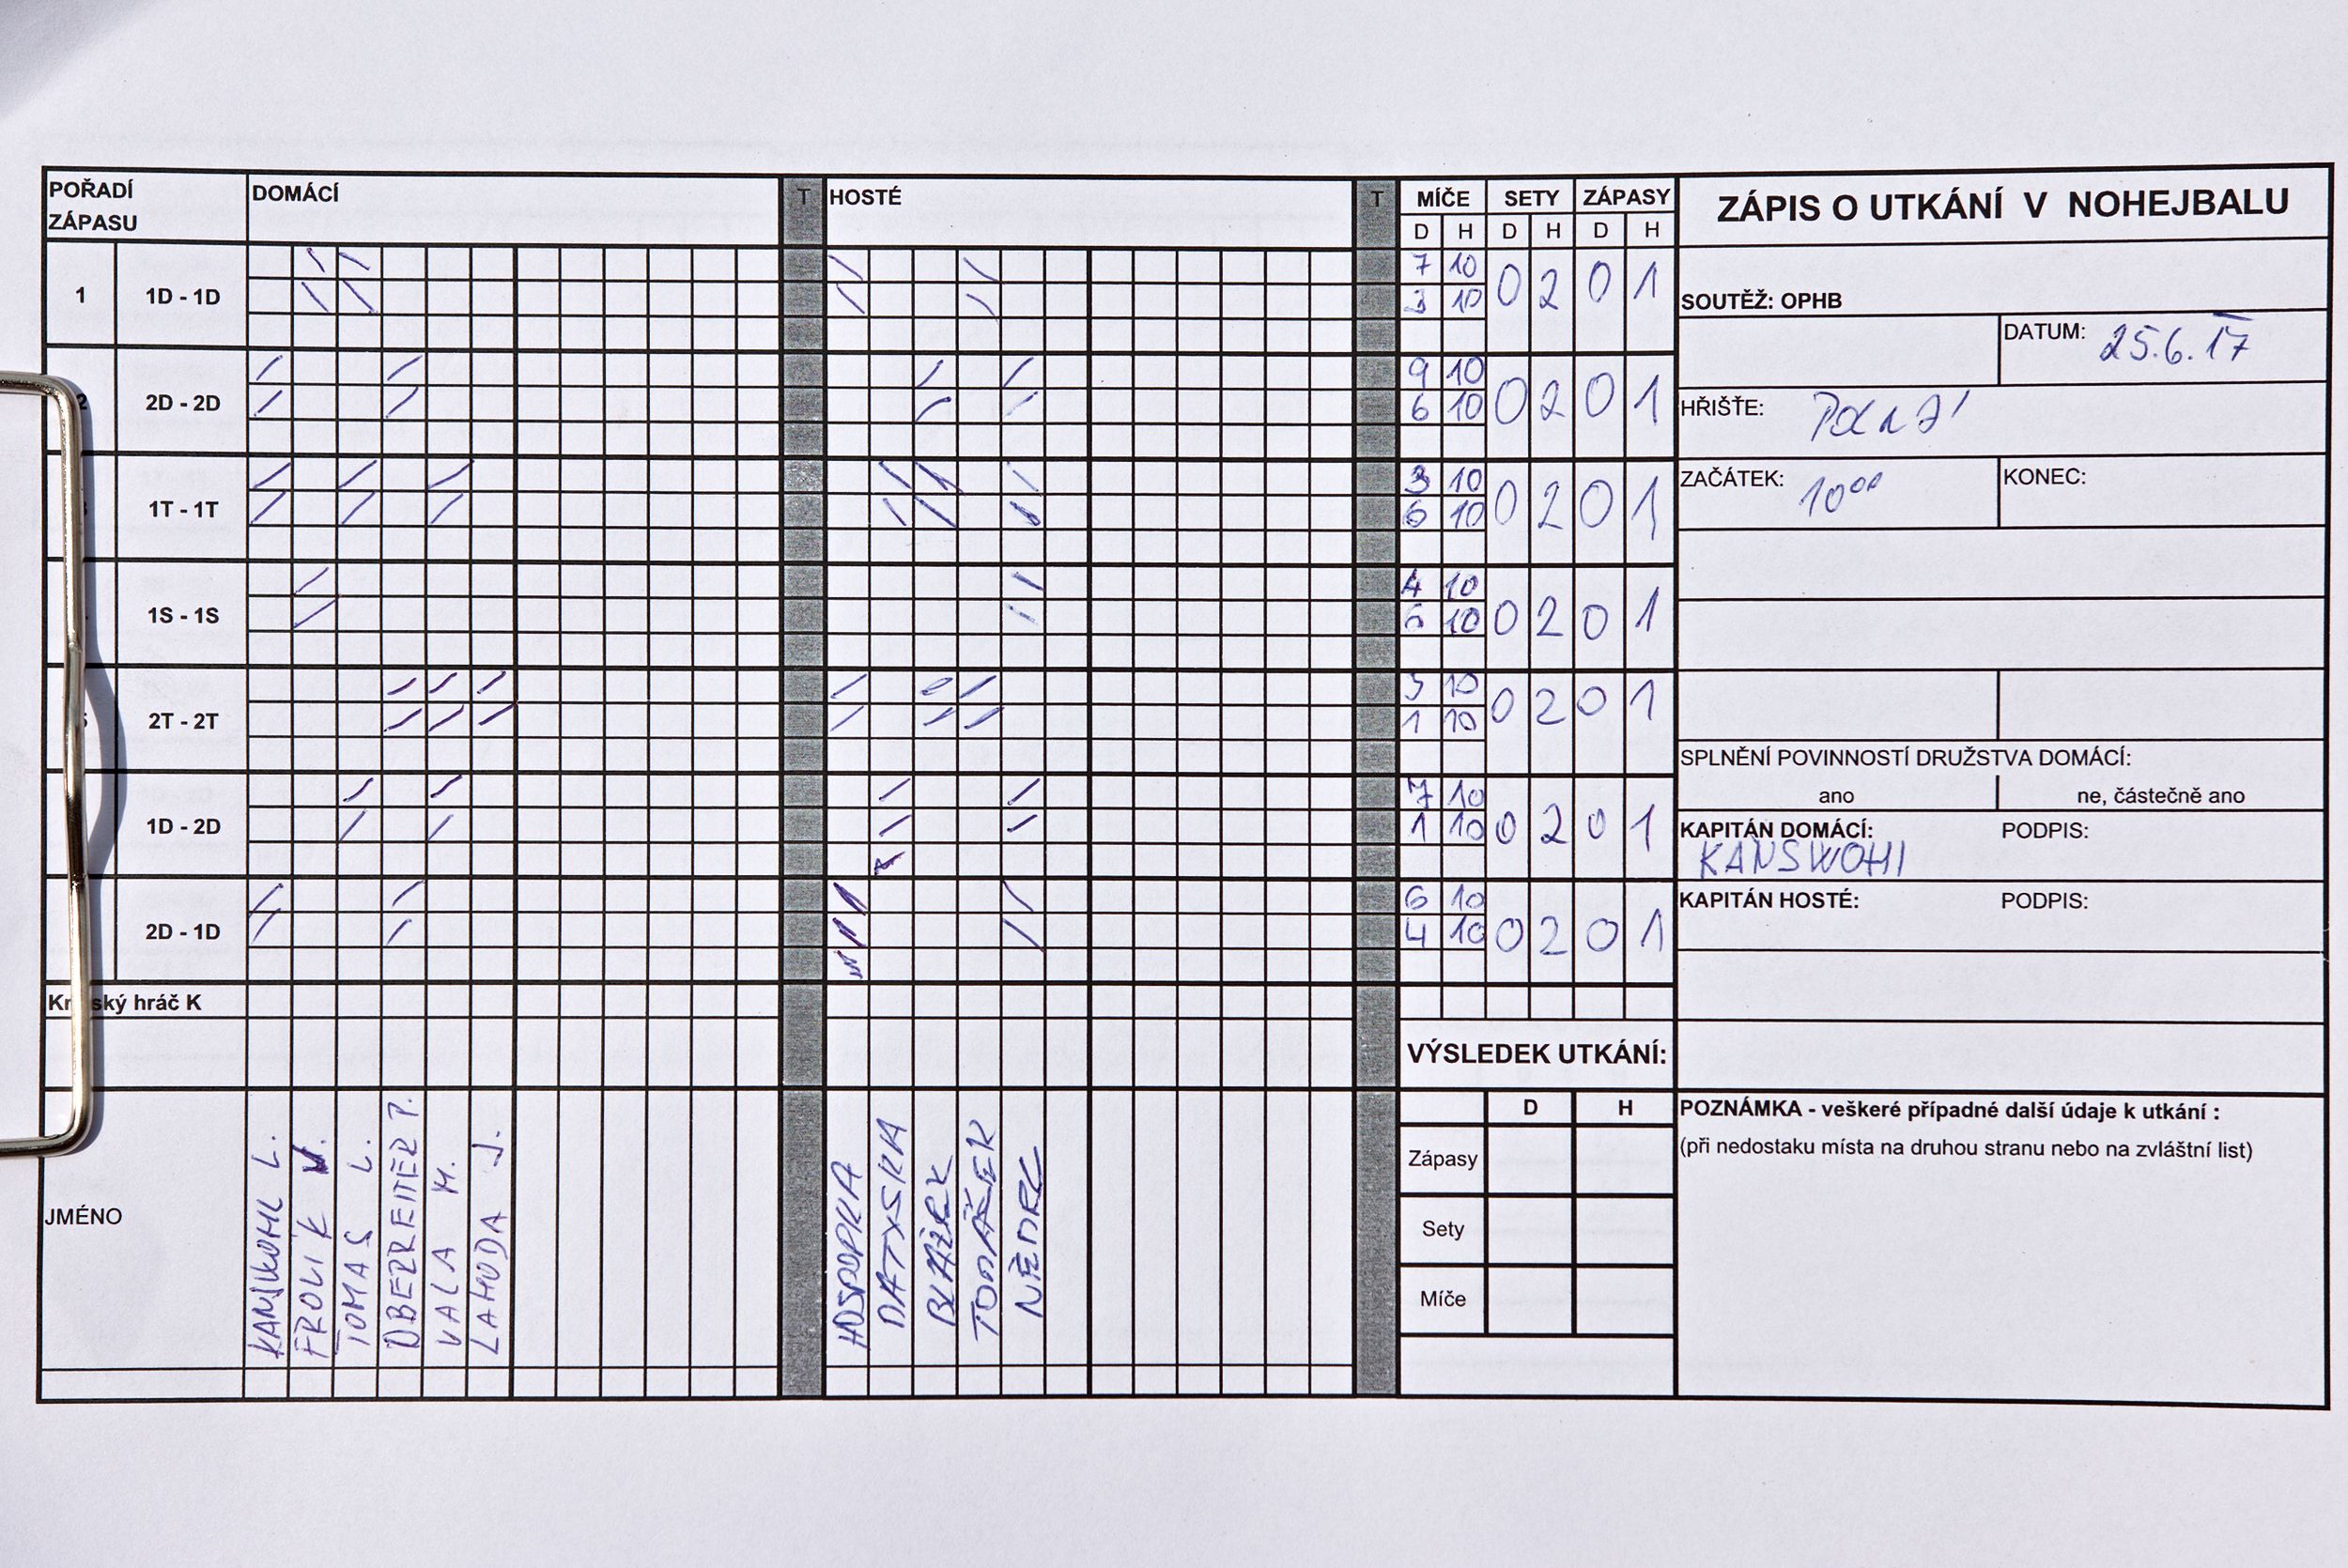 POŘADÍ ZÁPASU DOMÁCÍ T HOSTÉ T MÍČE SETY ZÁPASY
D H D H D H
ZÁPIS O UTKÁNÍ V NOHEJBALU
1 1D - 1D 7 10 0 2 0 1
3 10
SOUTĚŽ: OPHB
DATUM: 25.6.17
2 2D - 2D 9 10 0 2 0 1
6 10
HŘIŠTĚ:
1T - 1T 3 10 0 2 0 1
6 10
ZAČÁTEK: 10 00 KONEC:
1S - 1S 4 10 0 2 0 1
6 10
2T - 2T 10 0 2 0 1
1 10
SPLNĚNÍ POVINNOSTÍ DRUŽSTVA DOMÁCÍ:
ano ne, částečně ano
1D - 2D 7 10 0 2 0 1
1 10
KAPITÁN DOMÁCÍ: PODPIS:
2D - 1D 6 10 0 2 0 1
4 10
KAPITÁN HOSTÉ: PODPIS:
hráč K
VÝSLEDEK UTKÁNÍ:
D H
Zápasy
Sety
Míče
POZNÁMKA - veškeré případné další údaje k utkání :
(při nedostaku místa na druhou stranu nebo na zvláštní list)
JMÉNO
FROLÍK
TOMAS L.
OBERREITER P.
VALA M.
LAHODA J.
HOSPODKA
DATYSKA
BLAŽEK
NĚMEC